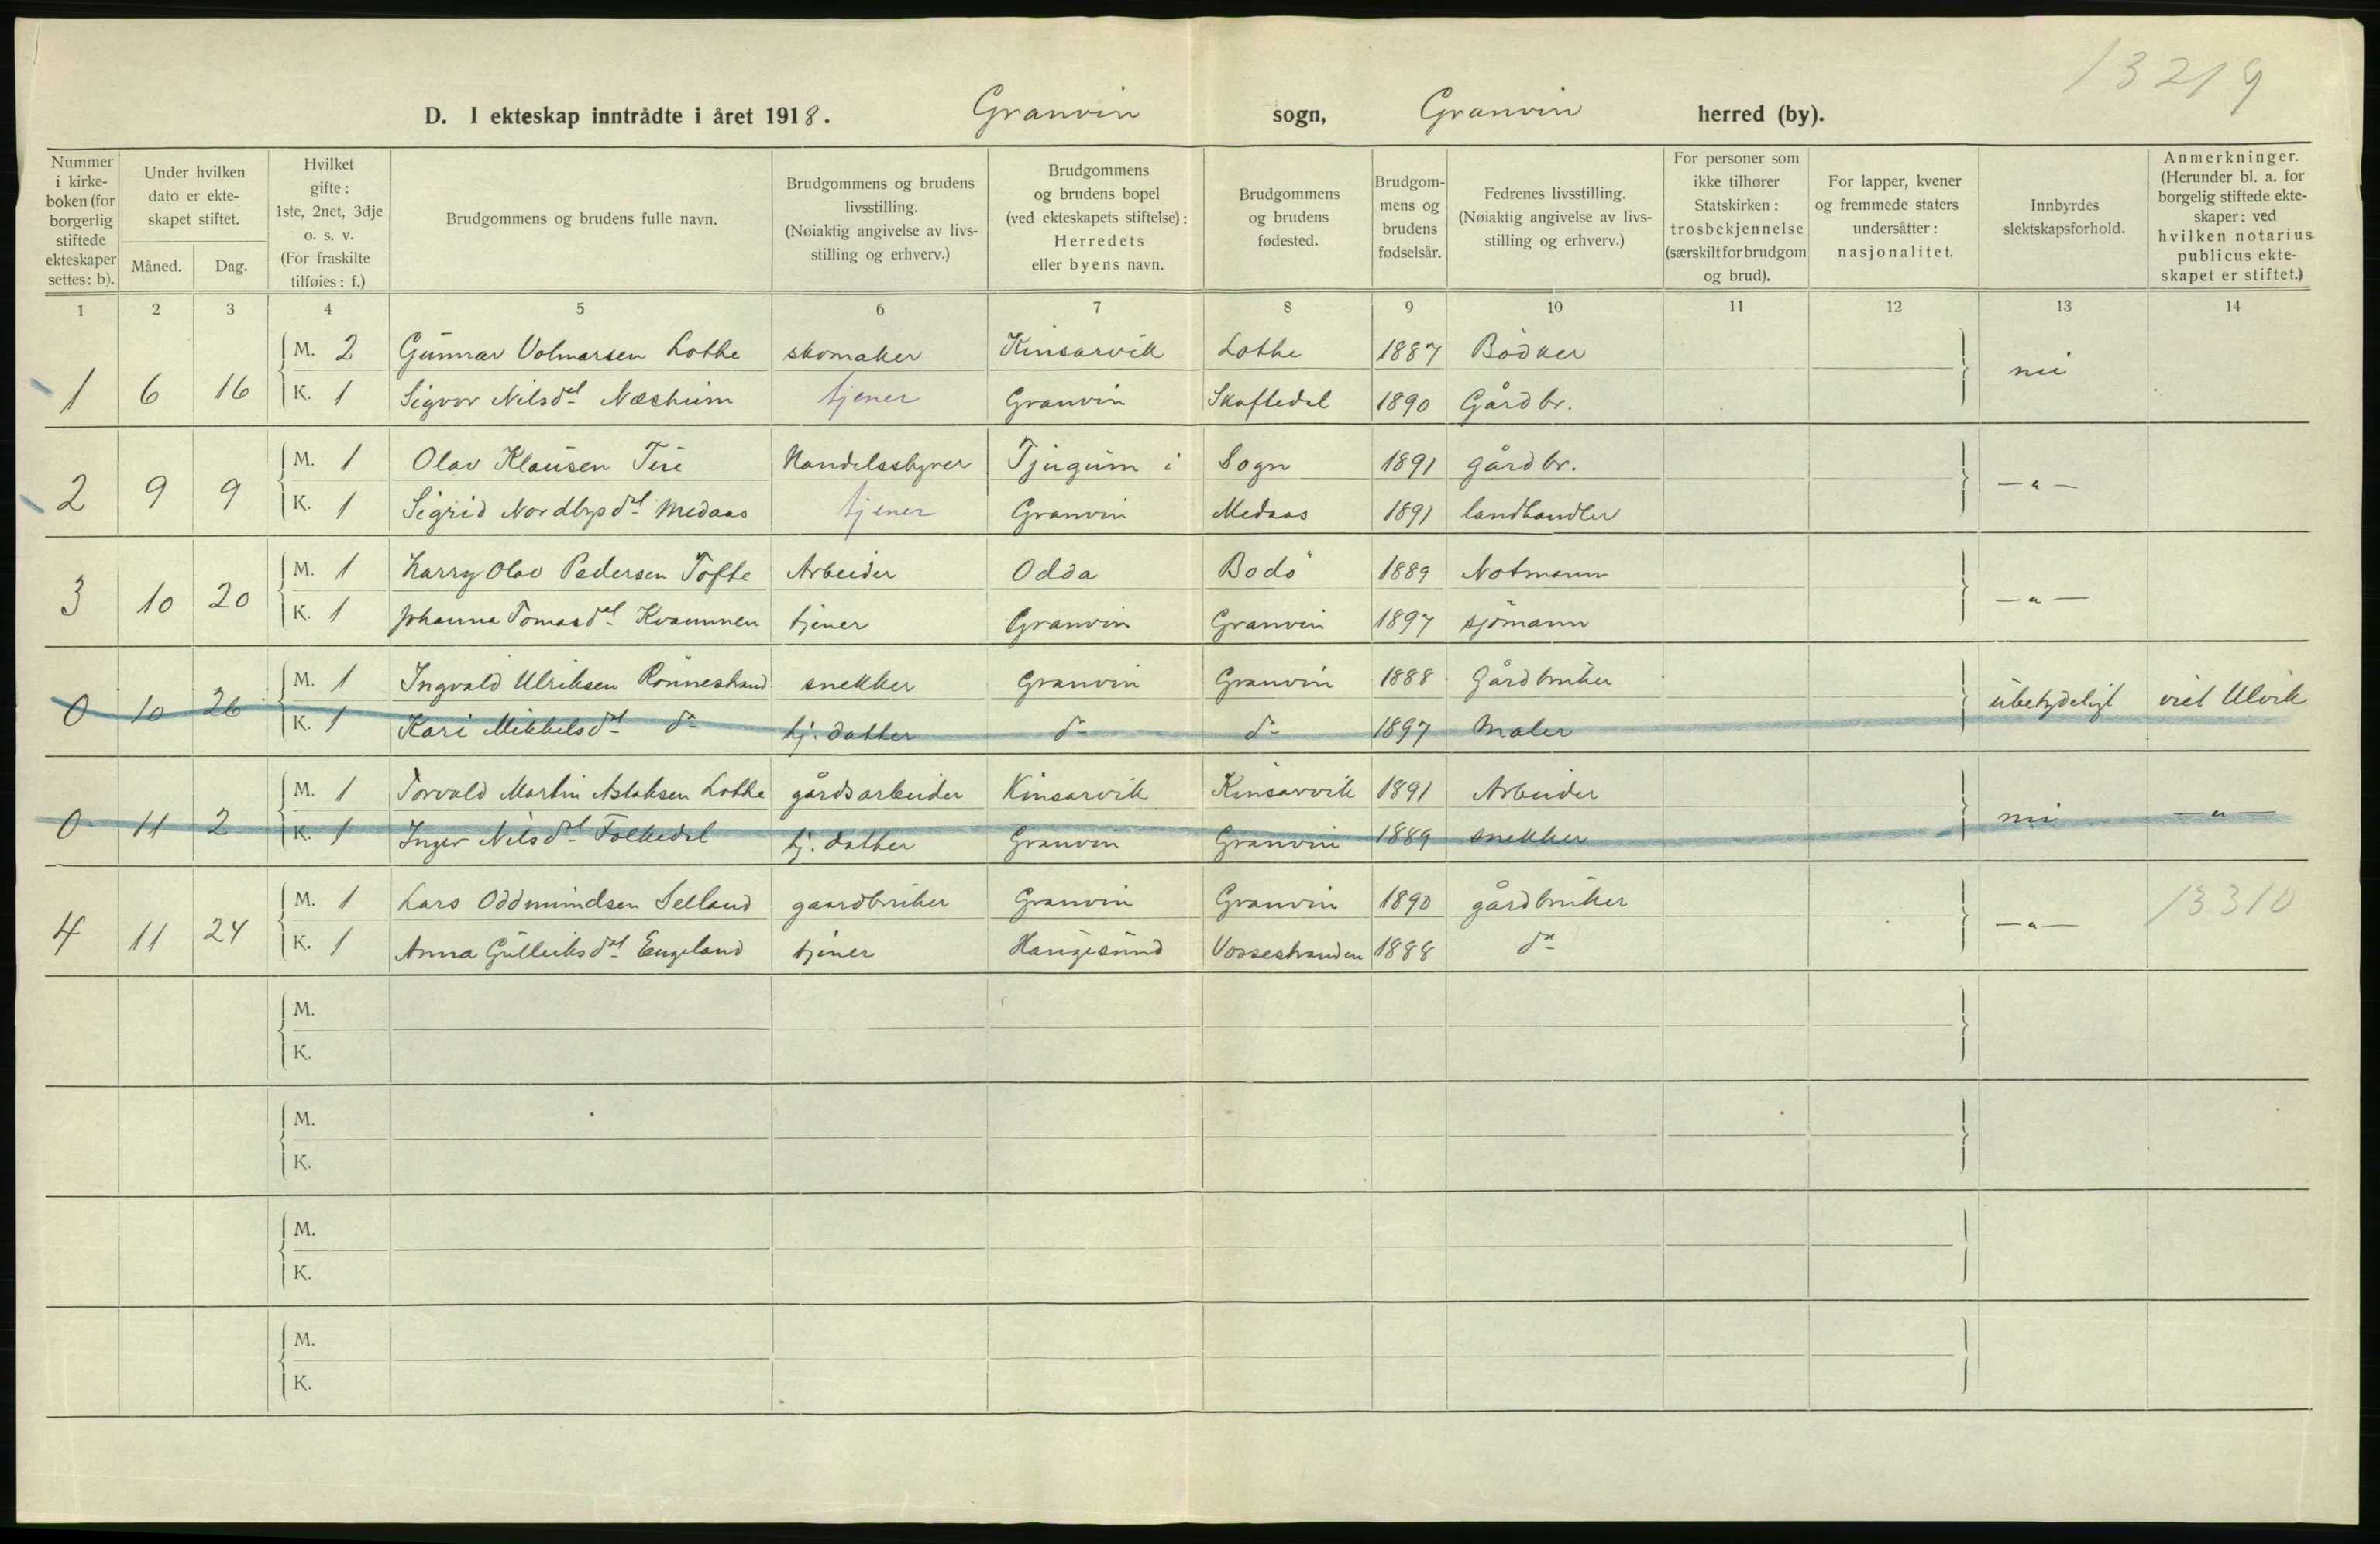 13219
D. I ekteskap inntrådte i året 1918. Granvin sogn, Granvin herred (by).
Nummer i kirke- boken (for borgerlig stiftede ekteskaper settes: b).
Under hvilken dato er ekte- skapet stiftet.
Måned. Dag.
Hvilket gifte: 1ste, 2net, 3dje o. s. v. (For fraskilte tilføies: f.)
Brudgommens og brudens fulle navn.
Brudgommens og brudens livsstilling. (Nøiaktig angivelse av livs- stilling og erhverv.)
Brudgommens og brudens bopel (ved ekteskapets stiftelse): Herredets eller byens navn.
Brudgommens og brudens fødested.
Brudgom- mens og brudens fødselsår.
Fedrenes livsstilling. (Nøiaktig angivelse av livs- stilling og erhverv.)
For personer som ikke tilhører Statskirken: trosbekjennelse (særskilt for brudgom og brud).
For lapper, kvener og fremmede staters undersåtter: nasjonalitet.
Innbyrdes slektskapsforhold.
Anmerkninger. (Herunder bl. a. for borgelig stiftede ekte- skaper: ved hvilken notarius publicus ekte- skapet er stiftet.)
1 2 3 4 5 6 7 8 9 10 11 12 13 14
M. 2 Gunnar Volmarsen Lothe skomaker Kinsarvik Lothe 1887 Bödker
1 6 16 K. 1 Sigvor Nilsdt Næsheim tjener Granvin Skaftedal 1890 Gårdbr. nei
M. 1 Olav Klausen Tire Handelsstyrer Tjugum i Sogn 1891 gårdbr.
2 9 9 K. 1 Sigrid Nordbysdt Medaas tjener Granvin Medaas 1891 landhandler —"—
M. 1 Harry Olav Pedersen Tofte Arbeider Odda Bodö 1889 Notmann
3 10 20 K. 1 Johanna Tomasdt Kvammen tjener Granvin Granvin 1897 sjömann —"—
M. 1 Ingvald Ulriksen Rönnestrand snekker Granvin Granvin 1888 Gårdbruker
0 10 26 K. 1 Kari Mikkelsdt do hj. datter do do 1897 Maler ubetydeligt viet Ulvik
M. 1 Torvald Martin Aslaksen Lothe gårdsarbeider Kinsarvik Kinsarvik 1891 Arbeider
0 11 2 K. 1 Inger Nilsdt Folkedal hj. datter Granvin Granvin 1889 snekker nei —"—
M. 1 Lars Oddmundsen Selland gaardbruker Granvin Granvin 1890 gårdbruker 13310
4 11 24 K. 1 Anna Gulleiksdt Engeland tjener Haugesund Vossestranden 1888 do —"—
M.
K.
M.
K.
M.
K.
M.
K.